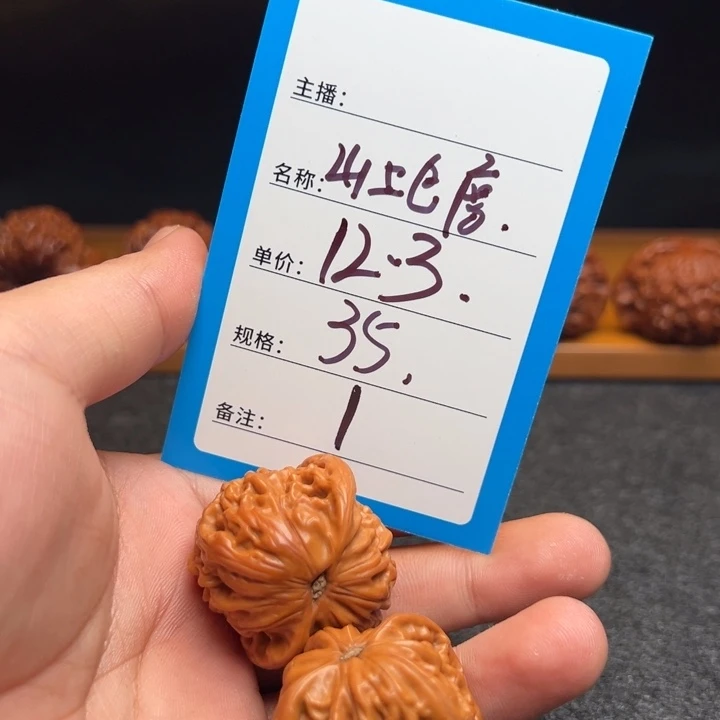 主播：
名称：上房.
单价：12·3.
规格：35,
备注：1